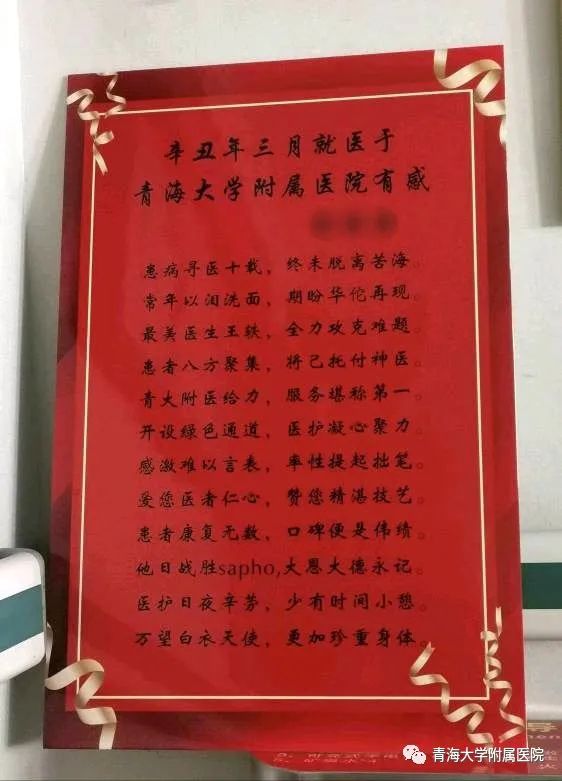 辛丑年三月就医于
青海大学附属医院有感
患病寻医十载，终未脱离苦海。
常年以泪洗面，期盼华佗再现。
最美医生王轶，全力攻克难题。
患者八方聚集，将己托付神医。
青大附医给力，服务堪称第一。
开设绿色通道，医护凝心聚力。
感激难以言表，率性提起拙笔。
爱您医者仁心，赞您精湛技艺。
患者康复无数，口碑便是伟绩。
他日战胜sapho,大恩大德永记。
医护日夜辛劳，少有时间小憩。
万望白衣天使，更加珍重身体。
导
青海大学附属医院